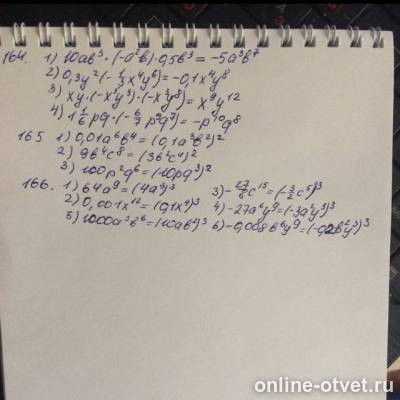 164. 1) 10ab³·(-a²b)·0,5b³=-5a³b⁷
2) 0,3y²(-⅓x⁴y⁶)=-0,1x⁴y⁸
3) xy·(-x⁵y³)·(-x³y⁸)=x⁹y¹²
4) 1⅙pq·(-6/7p⁹q⁷)=-p¹⁰q⁸
165. 1) 0,01a⁶b⁴=(0,1a³b²)²
2) 9b⁴c⁸=(3b²c⁴)²
3) 100p²q⁶=(10pq³)²
166. 1) 64a⁹=(4a³)³
2) 0,001x¹²=(0,1x⁴)³
5) 1000a³b⁶=(10ab²)³
3)-27/8c¹⁵=(-3/2c⁵)³
4) -27a⁶y⁹=(-3a²y³)³
6)-0,008b⁶y⁹=(-0,2b²y³)³
online-otvet.ru